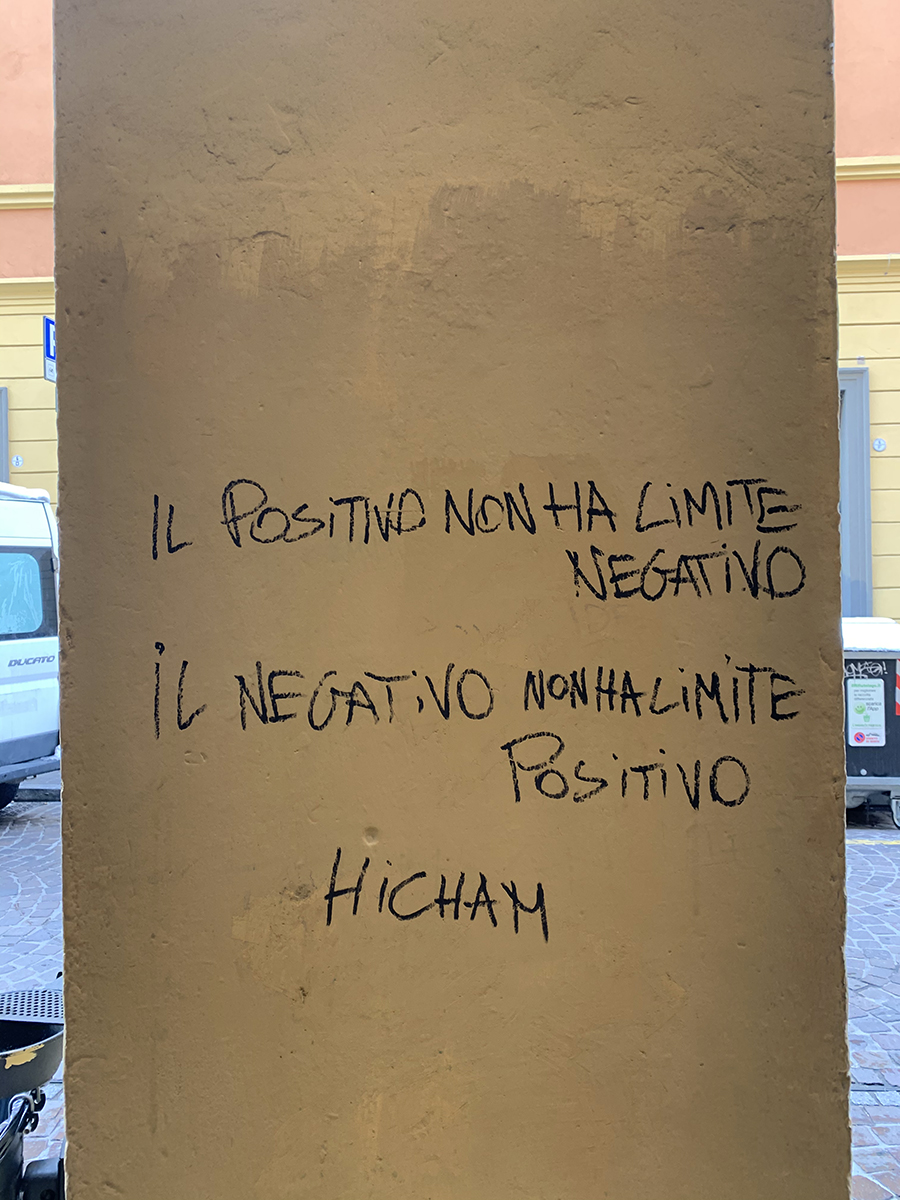 IL POSITIVO NON HA LIMITE
NEGATIVO
IL NEGATIVO NON HA LIMITE
POSITIVO
HICHAM
DUCATO